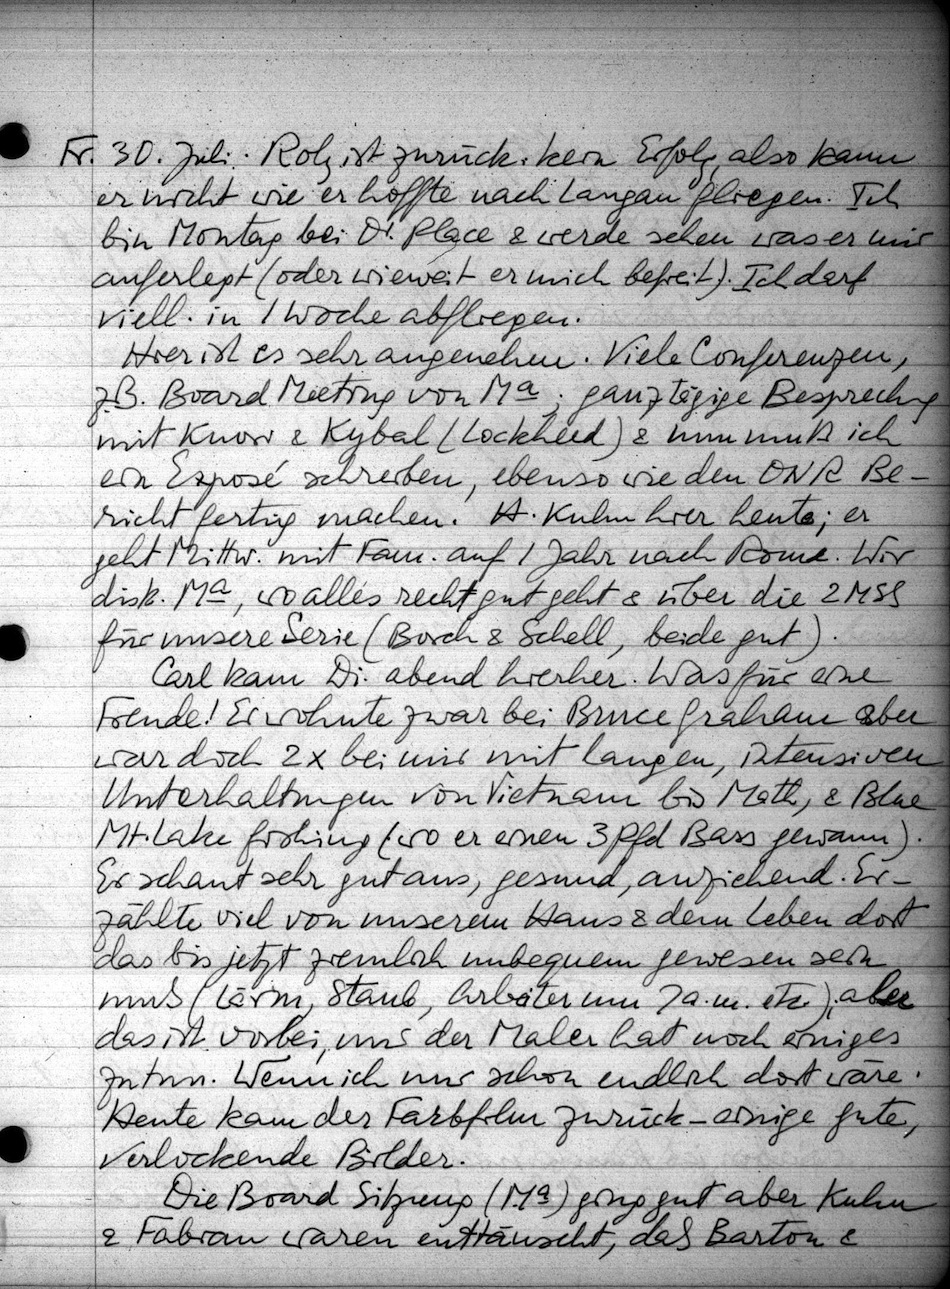 Fr. 30. Juli. Rolf ist zurück. kein Erfolg, also kann
er nicht wie er hoffte nach Langau fliegen. Ich
bin Montag bei Dr. Place & werde sehen was er mir
auferlegt (oder wieweit er mich befreit). Ich darf
viell. in 1 Woche abfliegen.
Hier ist es sehr angenehm. Viele Conferenzen,
z.B. Board Meeting von Ma; ganztägige Besprechg
mit Knorr & Kybal (Lockheed) & nun muß ich
ein Exposé schreiben, ebenso wie den ONR Be-
richt fertig machen. H. Kuhn hier heute; er
geht Mittw. mit Fam. auf 1 Jahr nach Rome. Wir
disk. Ma, wo alles recht gut geht & über die 2 MSS
für unsere Serie (Borch & Schell, beide gut).
Carl kam Di. abend hierher. Was für eine
Freude! Er wohnte zwar bei Bruce Graham aber
war doch 2x bei mir mit langen, intensiven
Unterhaltungen von Vietnam bis Math, & Blue
Mt. Lake fishing (wo er einen 3 Pfd Bass gewann).
Er schaut sehr gut aus, gesund, anziehend. Er-
zählte viel von unserem Haus & dem Leben dort
das bis jetzt ziemlich unbequem gewesen sein
muß (Lärm, Staub, Arbeiter um 7 a.m. etc.), aber
das ist vorbei, nur der Maler hat noch einiges
zu tun. Wenn ich nur schon endlich dort wäre.
Heute kam der Farbfilm zurück – einige gute,
verlockende Bilder.
Die Board Sitzung (Ma) ging gut aber Kuhn
& Fabian waren enttäuscht, daß Barton &